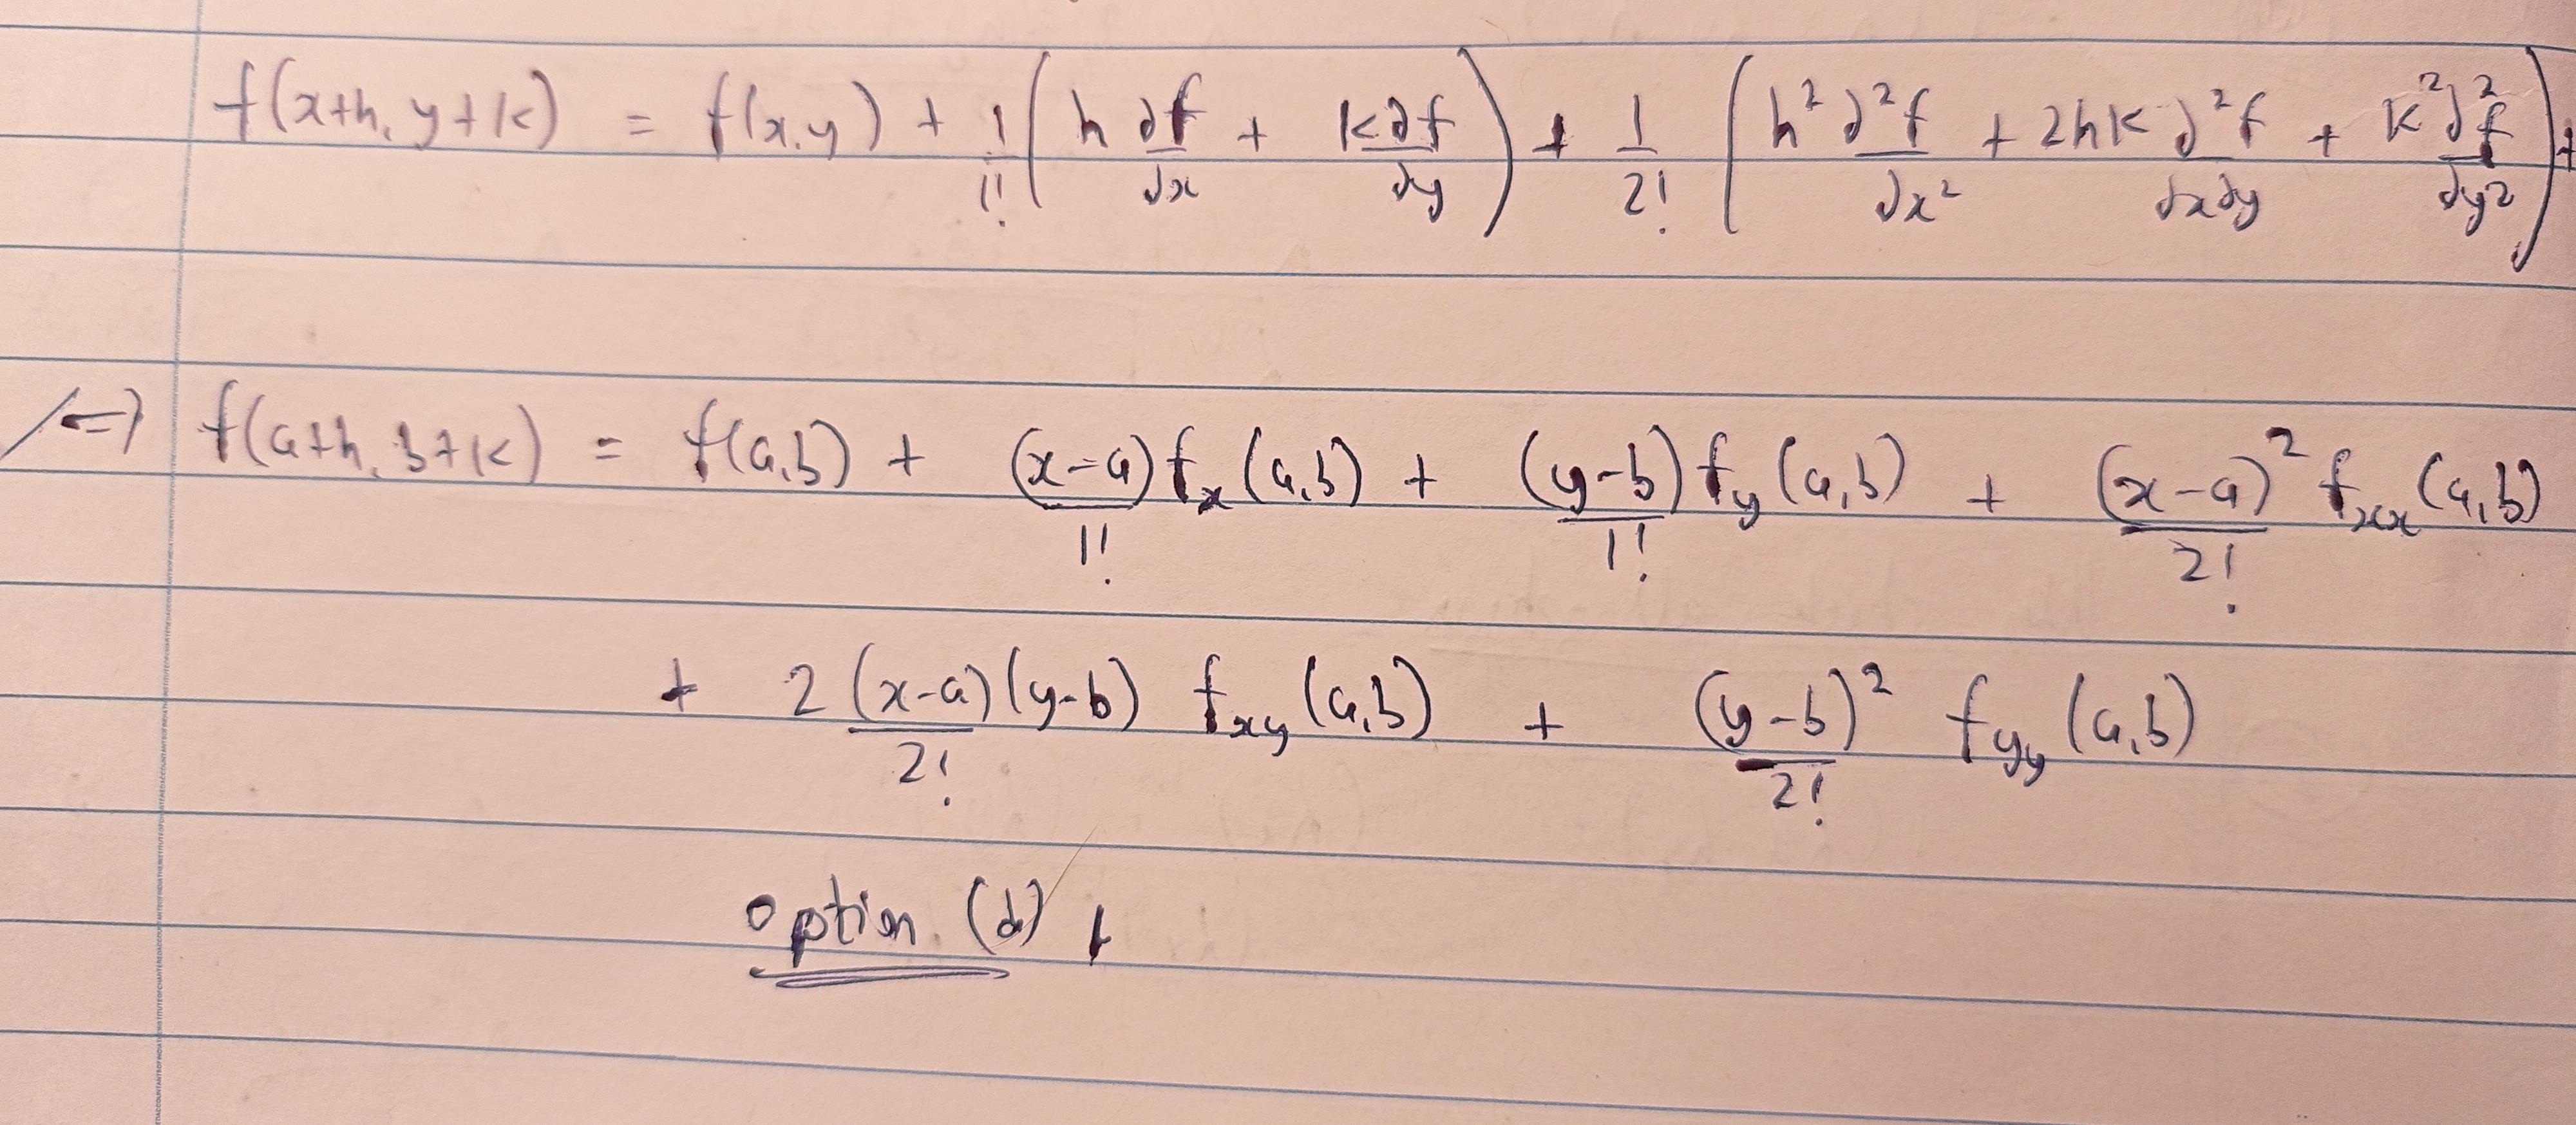 f(x+h, y+k) = f(x,y) + 1/1! (h ∂f/∂x + k ∂f/∂y) + 1/2! (h² ∂²f/∂x² + 2hk ∂²f/∂x∂y + k² ∂²f/∂y²) +
⇒ f(a+h, b+k) = f(a,b) + (x-a)/1! fₓ(a,b) + (y-b)/1! f_y(a,b) + (x-a)²/2! fₓₓ(a,b)
+ 2(x-a)(y-b)/2! f_xy(a,b) + (y-b)²/2! f_yy(a,b)
option (d)